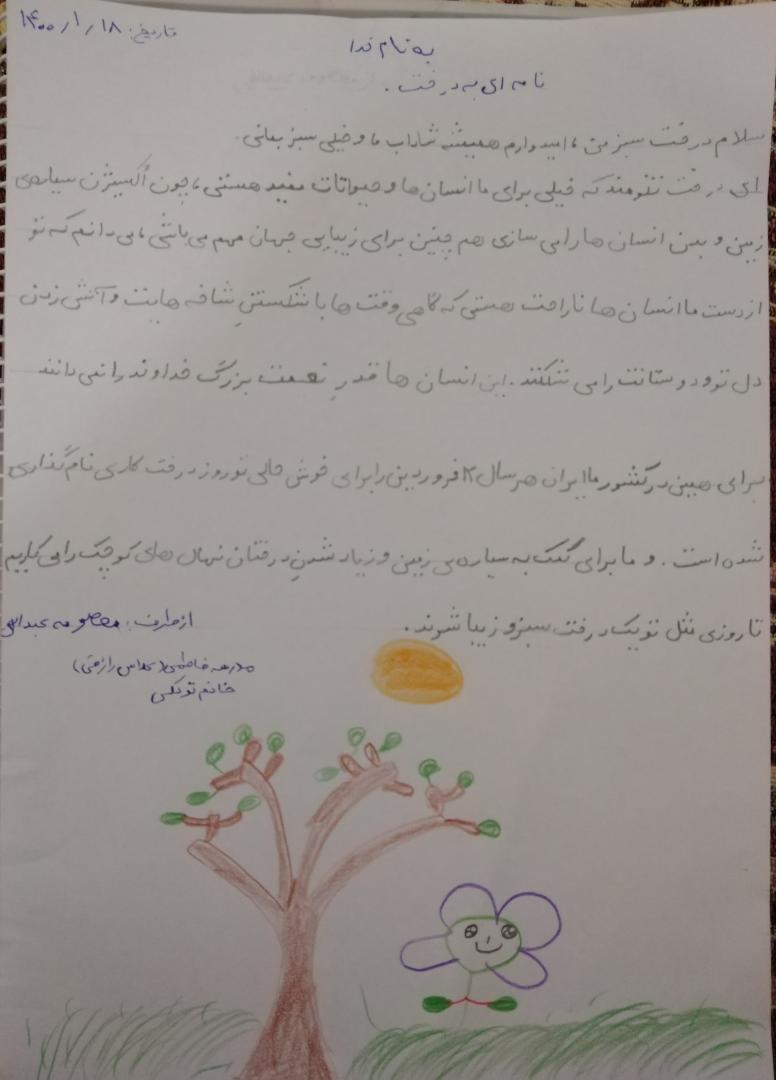 تاریخ: ۱۴۰۰/۱/۱۸
به نام خدا
نامه ای به درخت.
سلام درخت سبز من، امیدوارم همیشه شاداب ما و خیلی سبز بمانی.
ای درخت تنومند که خیلی برای ما انسان ها و حیوانات مفید هستی، چون اُکسیژن سیاره‌ی
زمین و بدن انسان ها را می سازی هم چنین برای زیبایی جهان مهم می باشی، می دانم که تو
از دست ما انسان ها ناراحت هستی که گاهی وقت ها با شکستنِ شاخه هایت و آتش زدن
دل تو و دوستانت را می شکنند. این انسان ها قدرِ نعمت بزرگ خداوند را نمی دانند
برای همین در کشور ما ایران هر سال ۲ فروردین را برای خوش حالی تو روز درخت کاری نام گذاری
شده است. و ما برای کمک به سیاره‌ی زمین و زیاد شدنِ درختان نهال های کوچک را می کاریم
تا روزی مثل تو یک درخت سبز و زیبا شوند.
از طرف: معصومه عبدالهی
مدرسه فاطمی (کلاس رازقی)
خانم توکلی